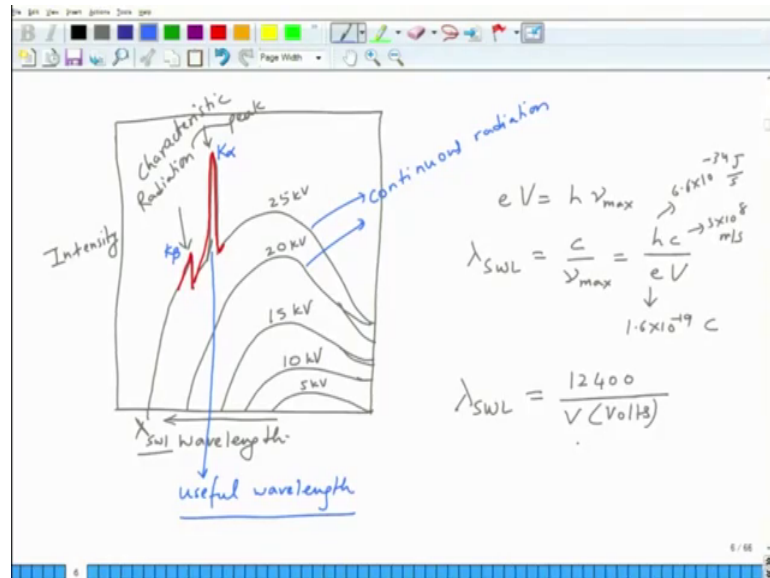 File Edit View Insert Actions Tools Help
Page Width
Characteristic
Radiation peak
Kα
Kβ
Intensity
25 kV
20 kV
15 kV
10 kV
5 kV
continuous radiation
λSWL wavelength.
useful wavelength
eV = h νmax
λSWL = c / νmax = hc / eV
6.6×10^-34 J/s
3×10^8 m/s
1.6×10^-19 C
λSWL = 12400 / V (Volts)
6 / 66
6